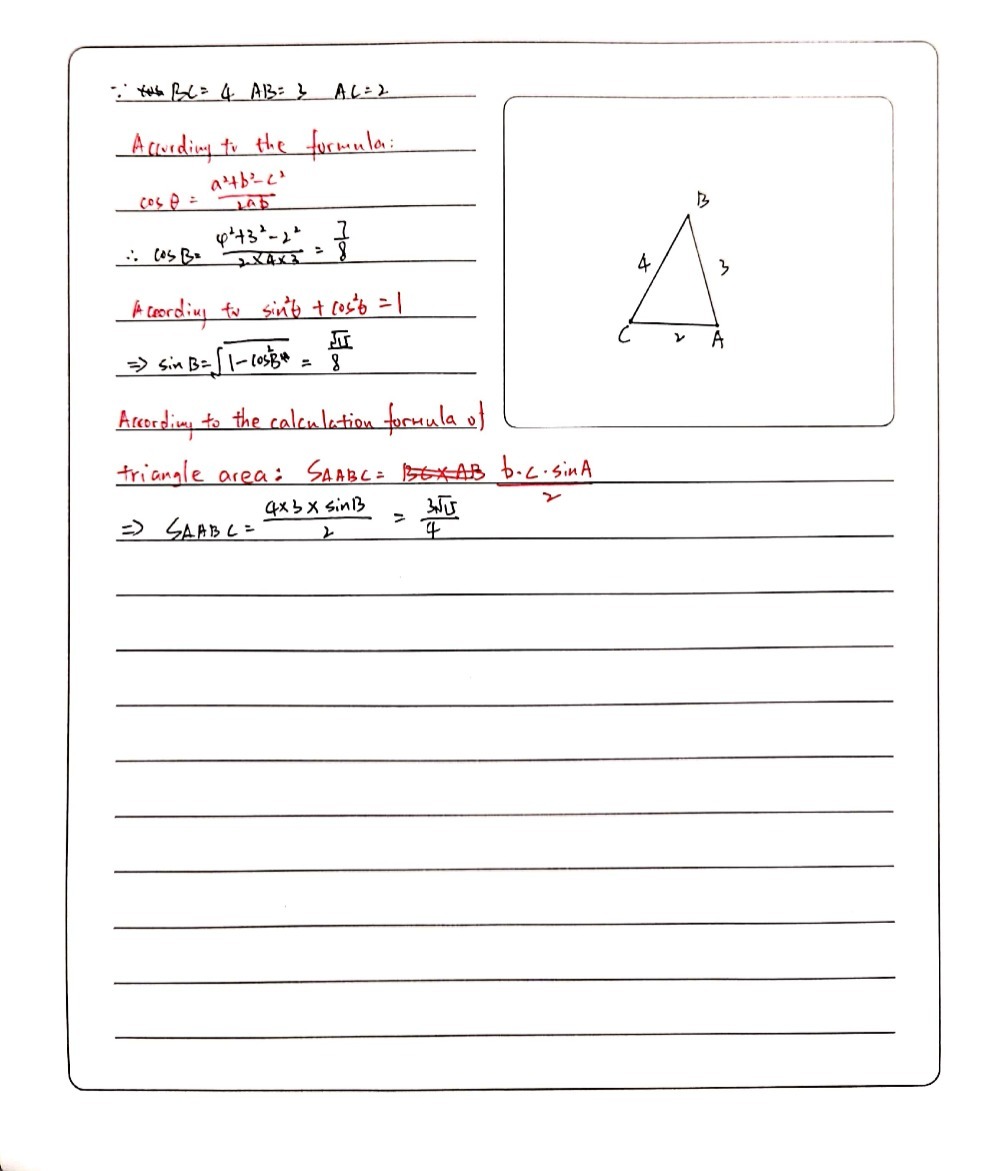 ∵ BC = 4 AB = 3 AC = 2
According to the formula:
cos θ = (a²+b²-c²)/(2ab)
∴ cos B = (4²+3²-2²)/(2×4×3) = 7/8
According to sin²θ + cos²θ = 1
=> sin B = √(1-cos²B) = √15/8
According to the calculation formula of
triangle area: S△ABC = BC×AB b·c·sinA/2
=> S△ABC = (4×3×sinB)/2 = 3√15/4
B
4 3
C 2 A